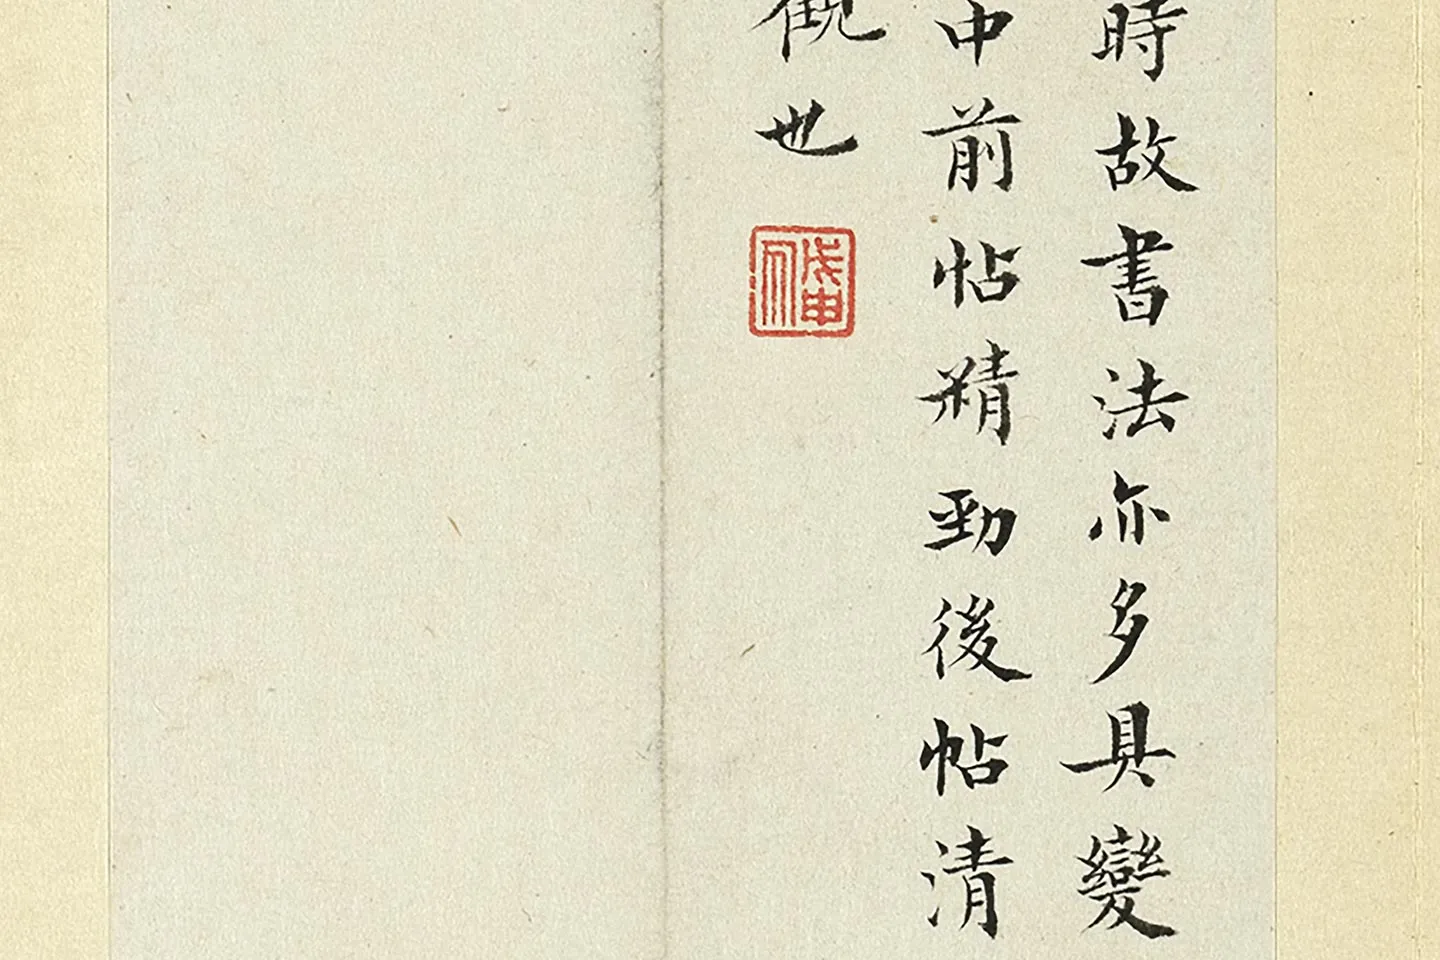 時故書法亦多具變
中前帖精勁後帖清
觀也
戊申